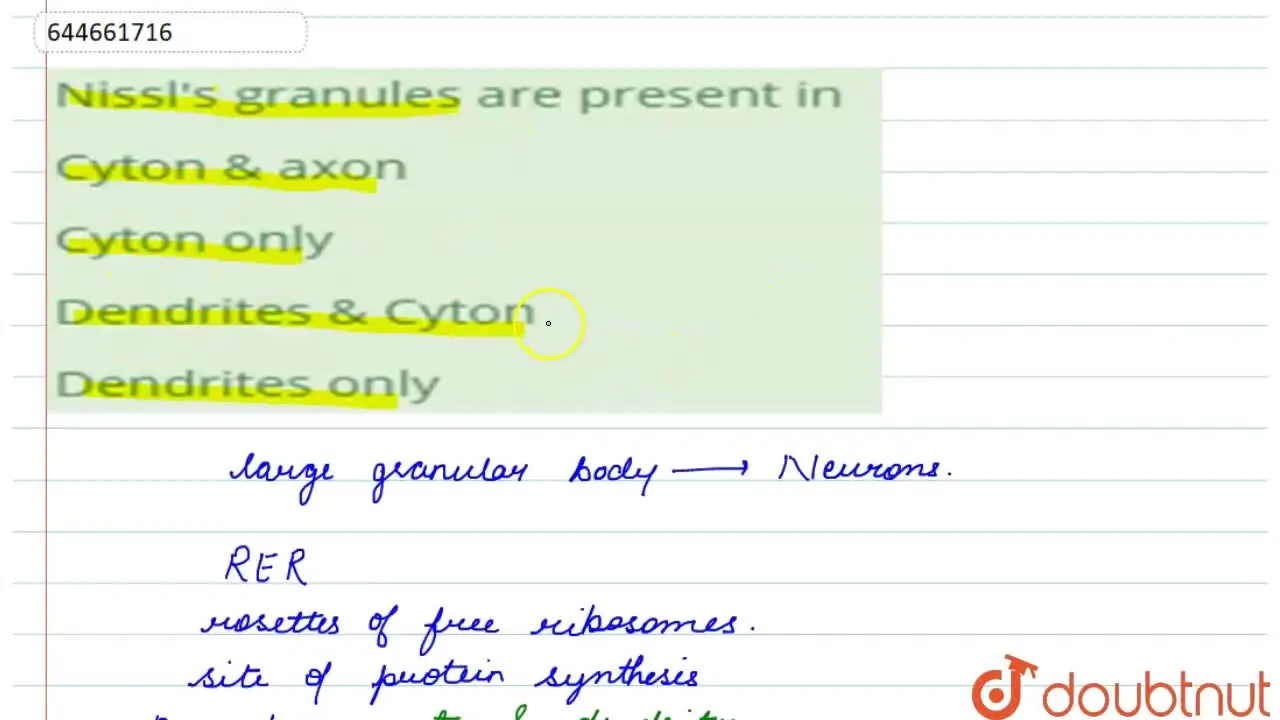 644661716
Nissl's granules are present in
Cyton & axon
Cyton only
Dendrites & Cyton
Dendrites only
large granular body → Neurons.
RER
rosettes of free ribosomes.
site of protein synthesis
&
doubtnut